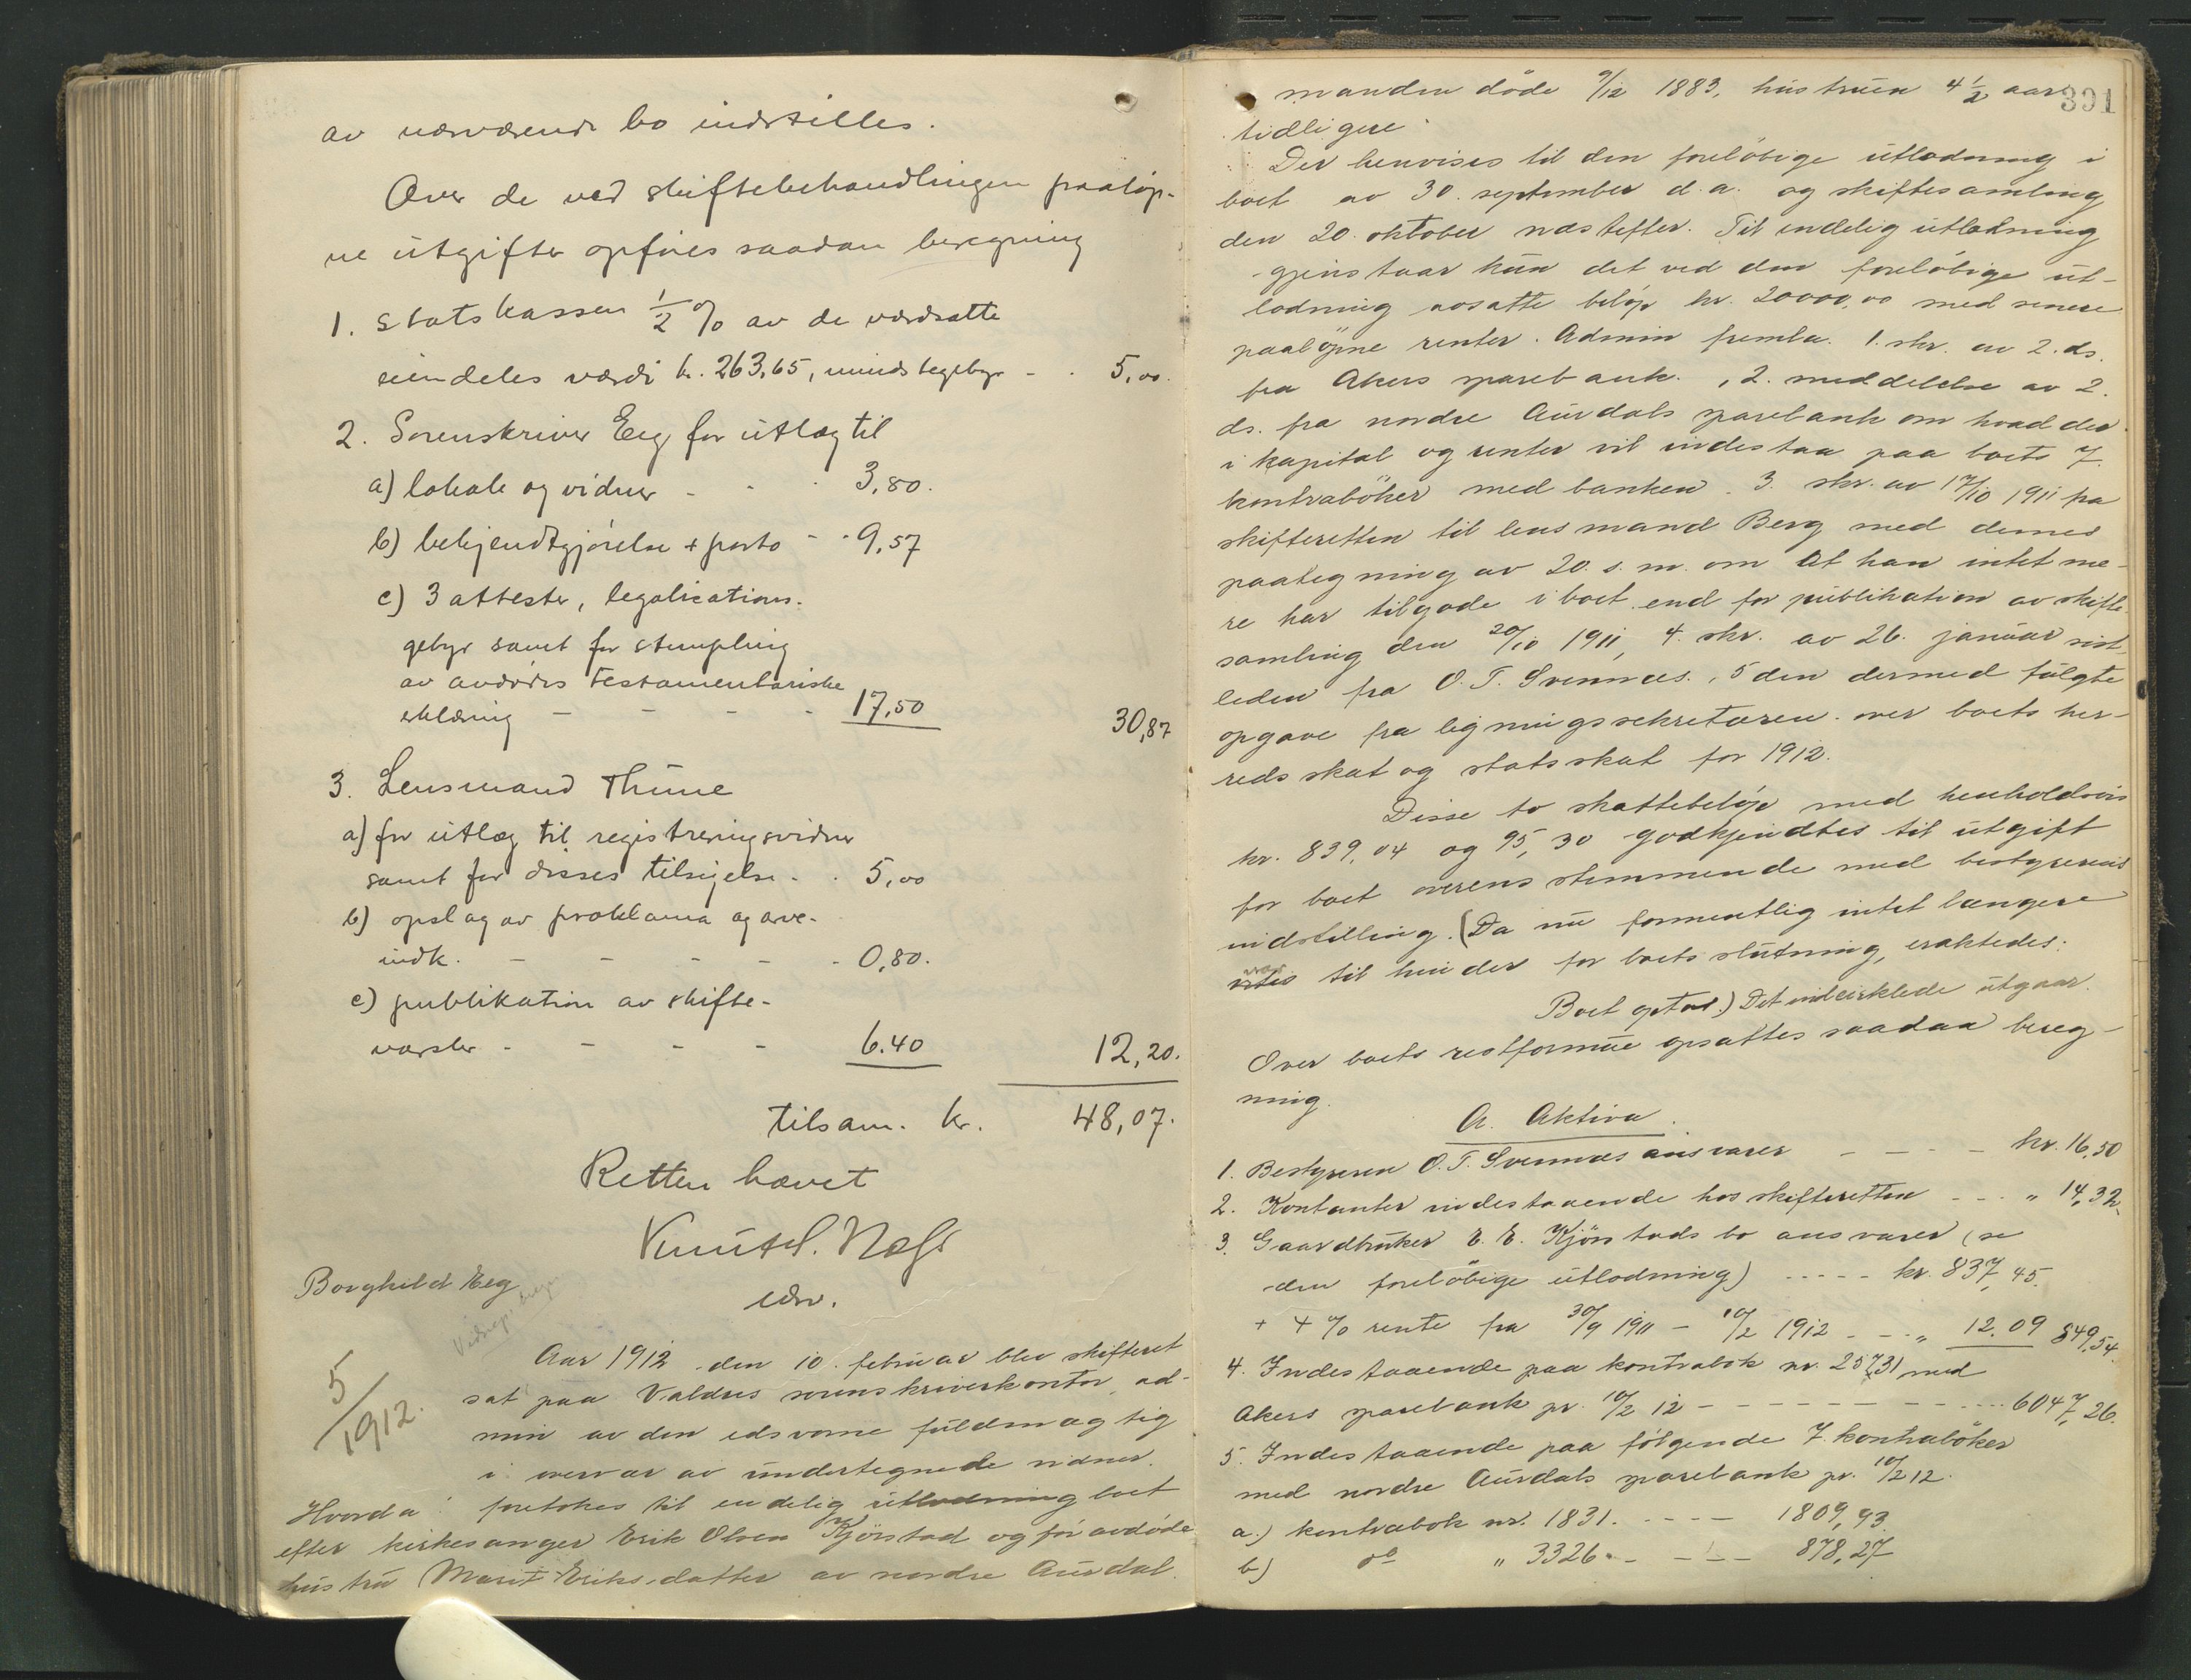 av nærværende bo indstilles.
Over de ved skiftebehandlingen paaløp-
ne utgifter opføres saadan beregning
1. Statskassen ½ % av de værdsatte
eiendeles værdi kr. 263,65, mindstegebyr - - 5,00.
2. Sorenskriver Eeg for utlæg til
a) lokale og vidner - - - 3,80.
b) bekjendtgjørelse + porto - - 9,57
c) 3 attester, legalisations-
gebyr samt for stempling
av avdødes testamentariske
erklæring - - - - 17,50 30,87
3. Lensmand Thune
a) for utlæg til registreringsvidner
samt for disses tilsigelse - - 5,00
b) opslag av proklama og arve-
indk. - - - - - 0,80.
c) publikation av skifte-
varsler - - - - 6.40 12,20.
tilsam. kr. 48,07.
Retten hævet
Knut
edsv.
Borghild Eeg
5/1912.
Aar 1912 den 10. februar blev skifteret
sat paa Valdres sorenskriverkontor, ad-
min av den edsvorne fuldmægtig
i overvær av undertegnede vidner.
Hvorda: foretokes til endelig utlodning boet
efter kirkesanger Erik Olsen Kjørstad og før avdøde
hustru Marit Eriksdatter av nordre Aurdal.
391
manden døde 9/12 1883, hustruen 4 ½ aar
tidligere.
Der henvises til den foreløbige utlodning i
boet av 30. september d. a. og skiftesamling
den 20. oktober næstefter. Til endelig utlodning
gjenstaar kun det ved den foreløbige ut-
lodning avsatte beløp kr. 20000,00 med senere
paaløpne renter. Admin fremla. 1. skr. av 2. ds.
fra Akers sparebank., 2. meddelelse av 2.
ds. fra nordre Aurdals sparebank om hvad der
i kapital og renter vil indestaa paa boets 7
kontrabøker med banken. 3. skr. av 17/10 1911 fra
skifteretten til lensmand Berg med dennes
paategning av 20. s. m. om at han intet me-
re har tilgode i boet end for publikation av skifte-
samling den 20/10 1911, 4. skr. av 26. januar sist-
leden fra O. T. Svennæs., 5 den dermed fulgte
opgave fra ligningssekretæren over boets her-
reds skat og statsskat for 1912.
Disse to skattebeløp med henholdsvis
kr. 839,04 og 95,30 godkjendtes til utgift
for boet overensstemmende med bestyrerens
indstilling. (Da nu formentlig intet længere
var til hinder for boets slutning, eraktedes:
Boet optat.) Det indcirklede utgaar.
Over boets restformue opsattes saadan bereg-
ning.
A. Aktiva.
1. Bestyreren O. T. Svennæs ansvarer - - - - kr. 16,50
2. Kontanter indestaaende hos skifteretten - - - " 14,32
3. Gaardbruker E. E. Kjørstads bo ansvarer (se
den foreløbige utlodning) - - - - - kr. 837,45.
+ 4 % rente fra 30/9 1911 - 10/2 1912 - - " 12.09 849,54.
4. Indestaaende paa kontrabok nr. 25731 med
Akers sparebank pr. 10/2 12 - - - - - - - - - - 6047,26.
5. Indestaaende paa følgende 7 kontrabøker
med nordre Aurdals sparebank pr. 10/2 12.
a.) kontrabok nr. 1831. - - - - 1809,93
b) do " 3326. - - - - 878,27